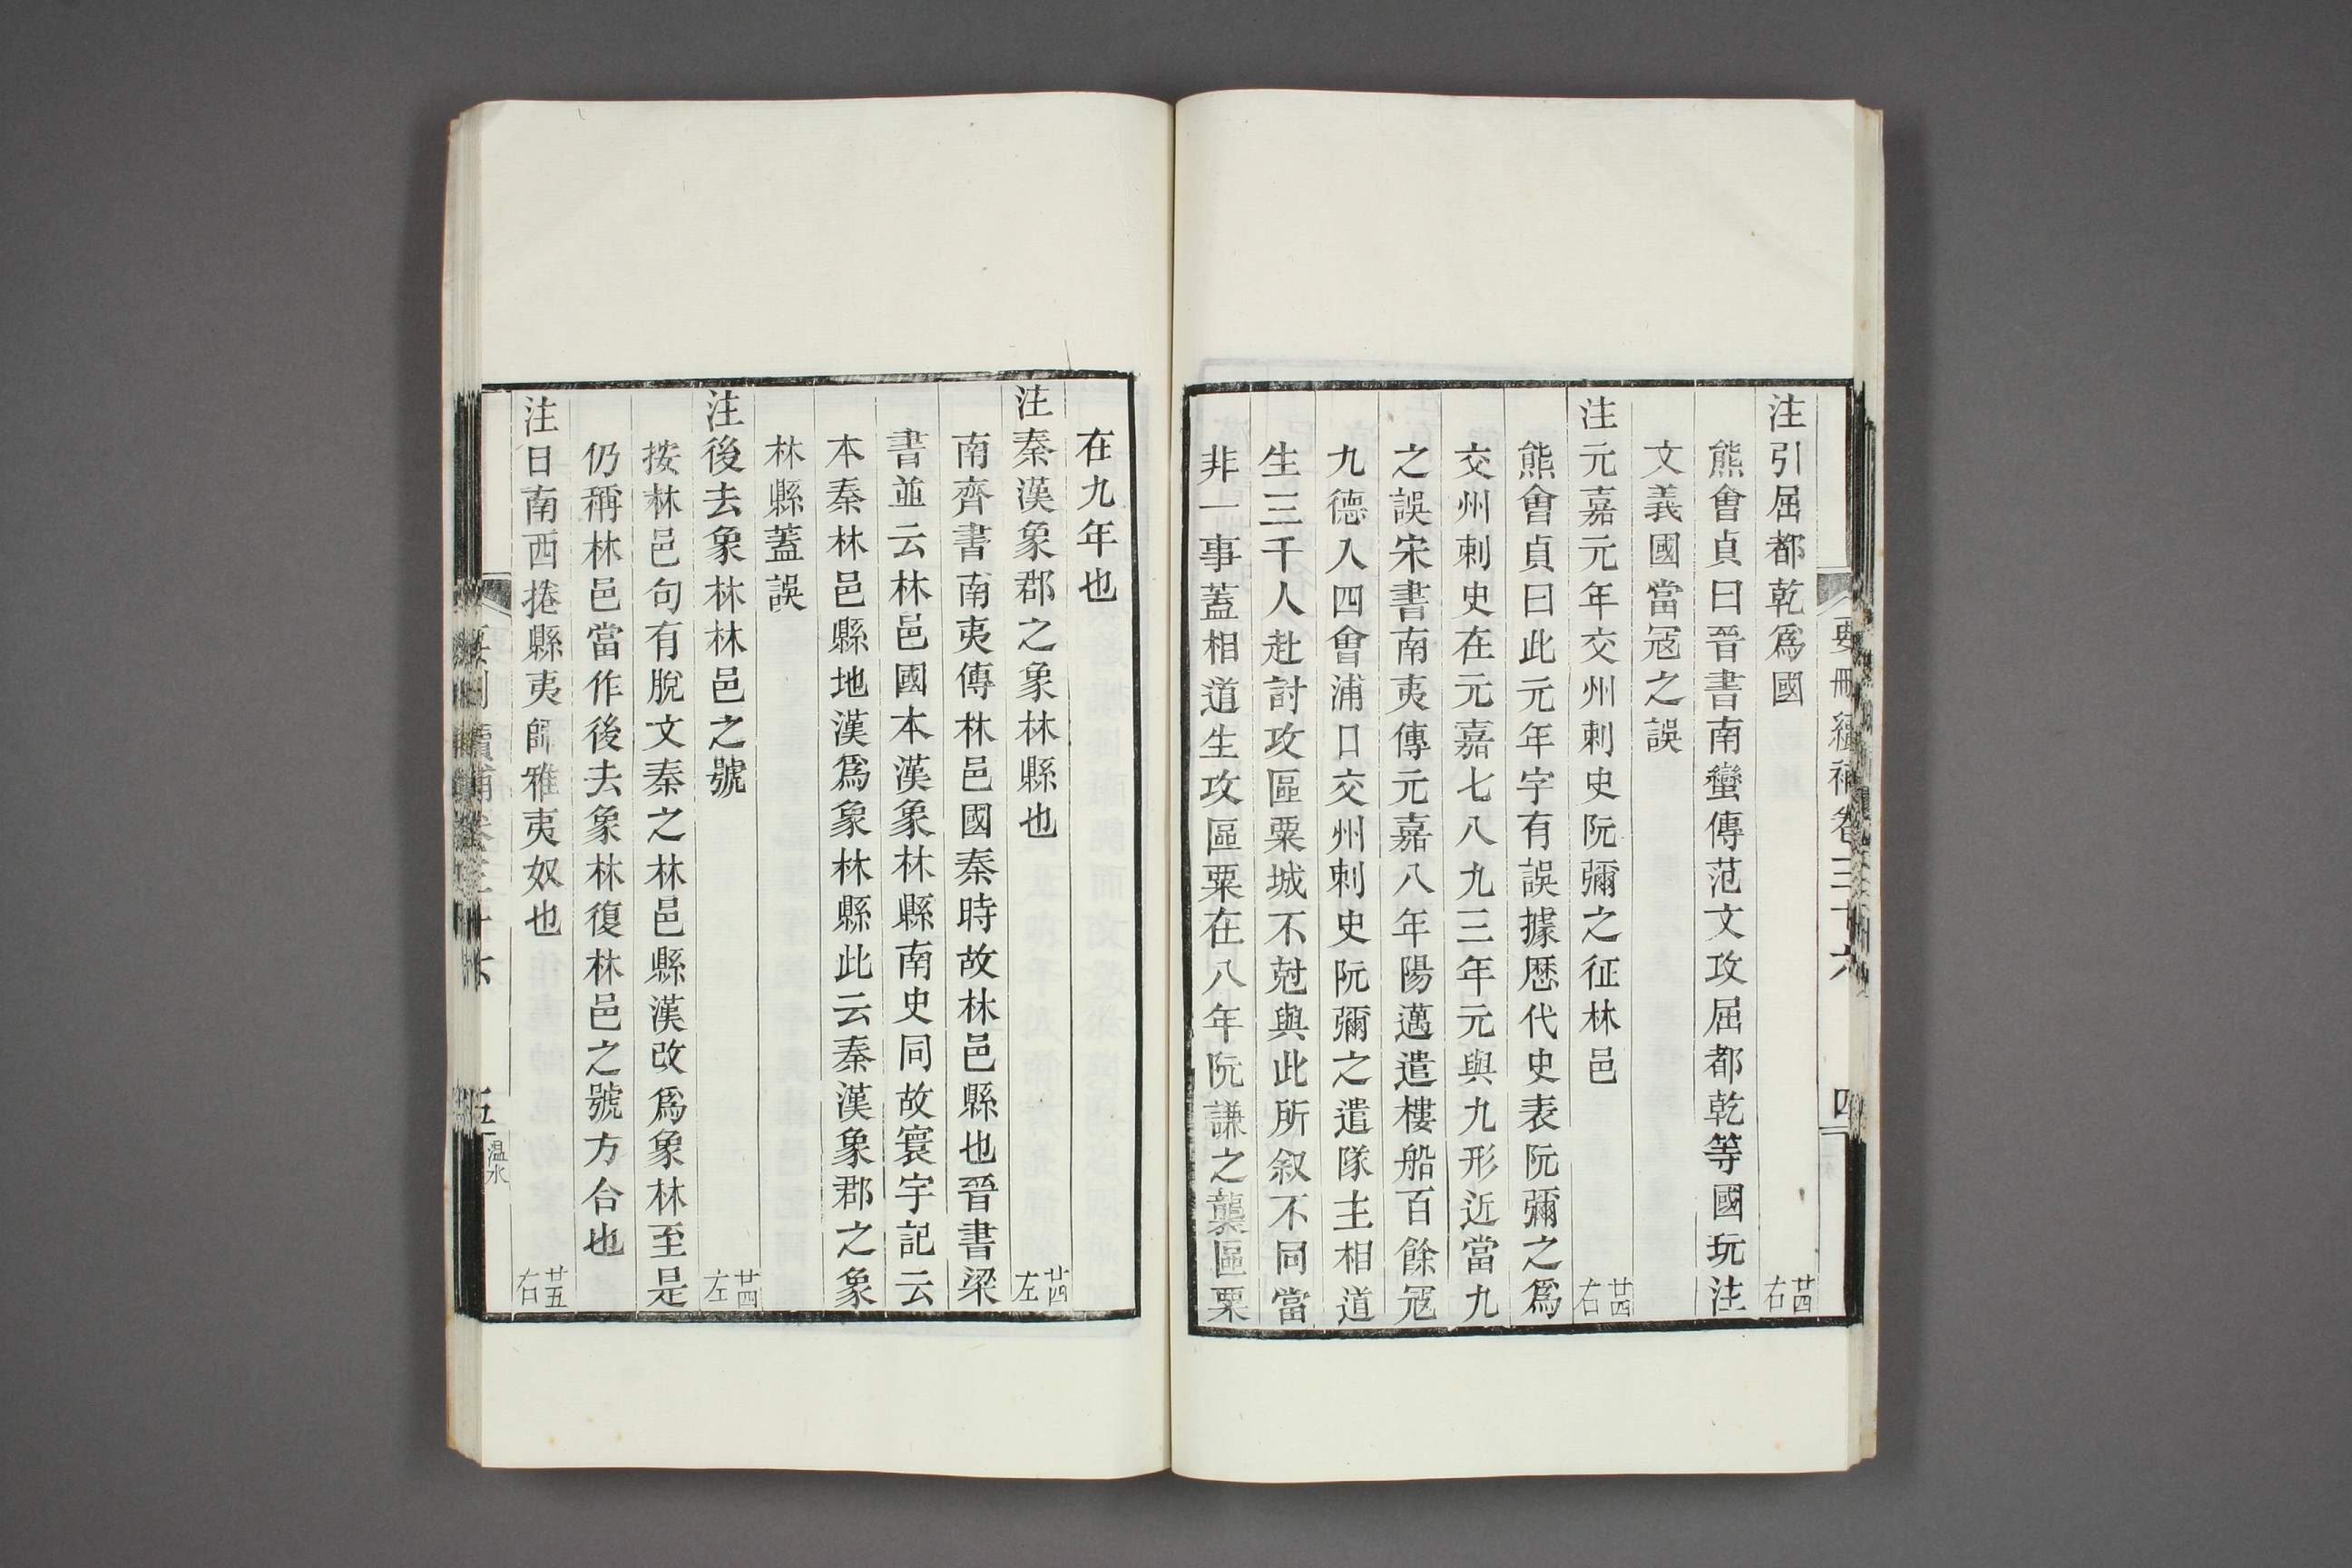 注引屈都乾爲國 廿四右
熊會貞曰晉書南蠻傳范文攻屈都乾等國玩注
文義國當冦之誤
注元嘉元年交州刺史阮彌之征林邑 廿四右
熊會貞曰此元年字有誤據歷代史表阮彌之爲
交州刺史在元嘉七八九三年元與九形近當九
之誤宋書南夷傳元嘉八年陽邁遣樓船百餘冦
九德入四會浦口交州刺史阮彌之遣隊主相道
生三千人赴討攻區粟城不尅與此所叙不同當
非一事蓋相道生攻區粟在八年阮謙之襲區粟
在九年也
注秦漢象郡之象林縣也 廿四左
南齊書南夷傳林邑國秦時故林邑縣也晉書梁
書並云林邑國本漢象林縣南史同故寰宇記云
本秦林邑縣地漢爲象林縣此云秦漢象郡之象
林縣蓋誤
注後去象林林邑之號 廿四左
按林邑句有脫文秦之林邑縣漢改爲象林至是
仍稱林邑當作後去象林復林邑之號方合也
注日南西捲縣夷帥雅夷奴也 廿五右
要刪續補卷三十六
四
五
温水